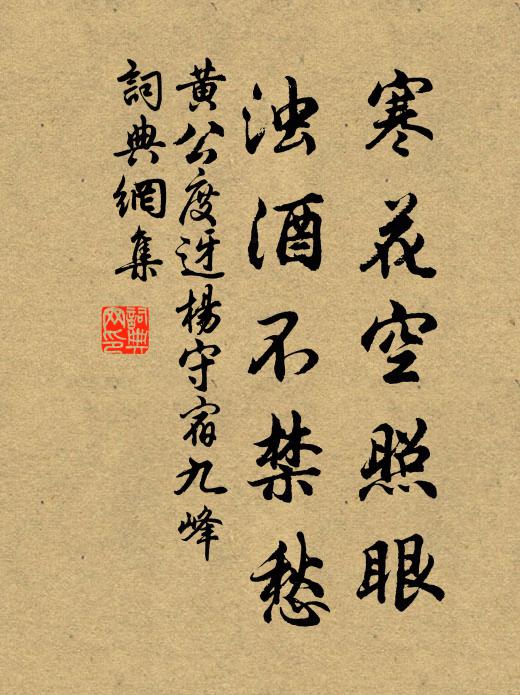 寒花空照眼
浊酒不禁愁
黄公度迓楊守宿九峰
詞典網集
詞典网印